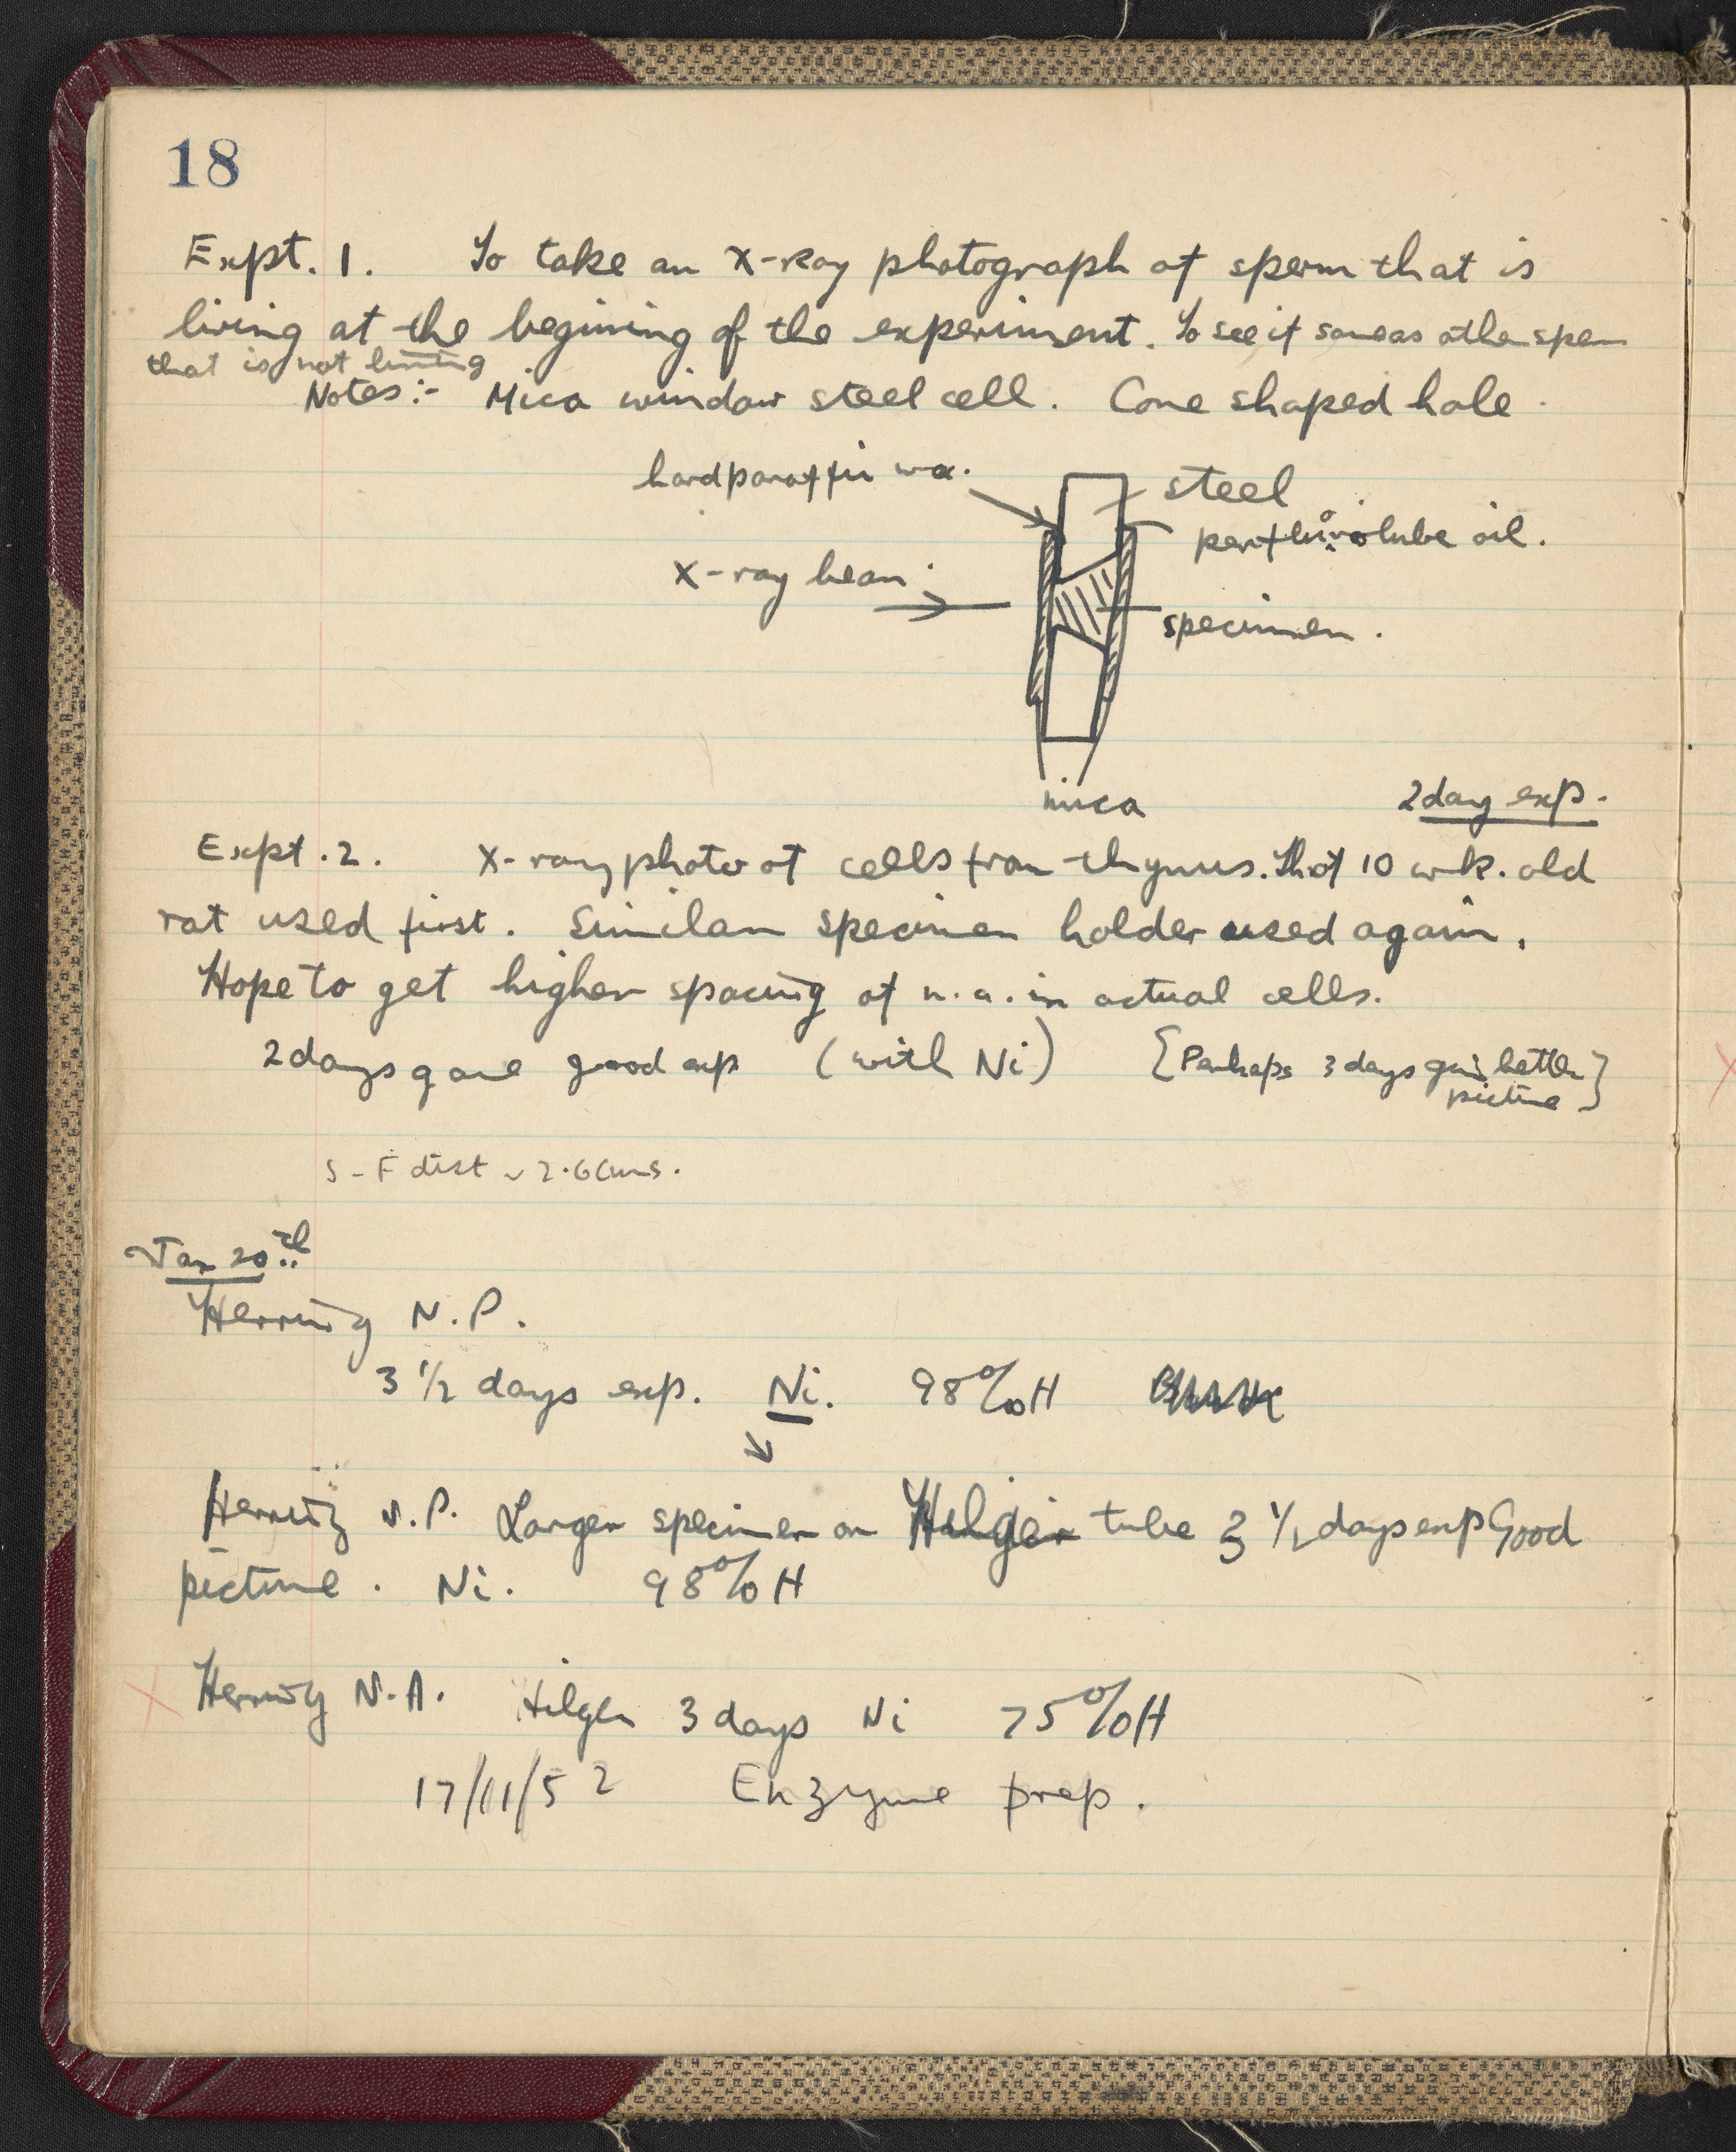 18
Expt. 1. To take an X-Ray photograph of sperm that is
living at the begining of the experiment. To see if same as other sperm
that is not living
Notes:- Mica window steel cell. Cone shaped hole.
hard paraffin wax.
steel
perfluorolube oil.
X-ray beam.
specimen.
mica
2 day exp.
Expt. 2. X-ray photo of cells from thymus. That 10 wk. old
rat used first. Similar specimen holder used again.
Hope to get higher spacing of n.a. in actual cells.
2 days gave good exp (with Ni) {Perhaps 3 days give better
picture}
S-F dist ~ 2.6 cms.
Jan 20th
Herring N.P.
3 1/2 days exp. Ni. 98% H
Herring N.P. Larger specimen on Hilger tube 3 1/2 days exp Good
picture. Ni. 98% H
Herring N.A. Hilger 3 days Ni 75% H
17/11/52 Enzyme prep.